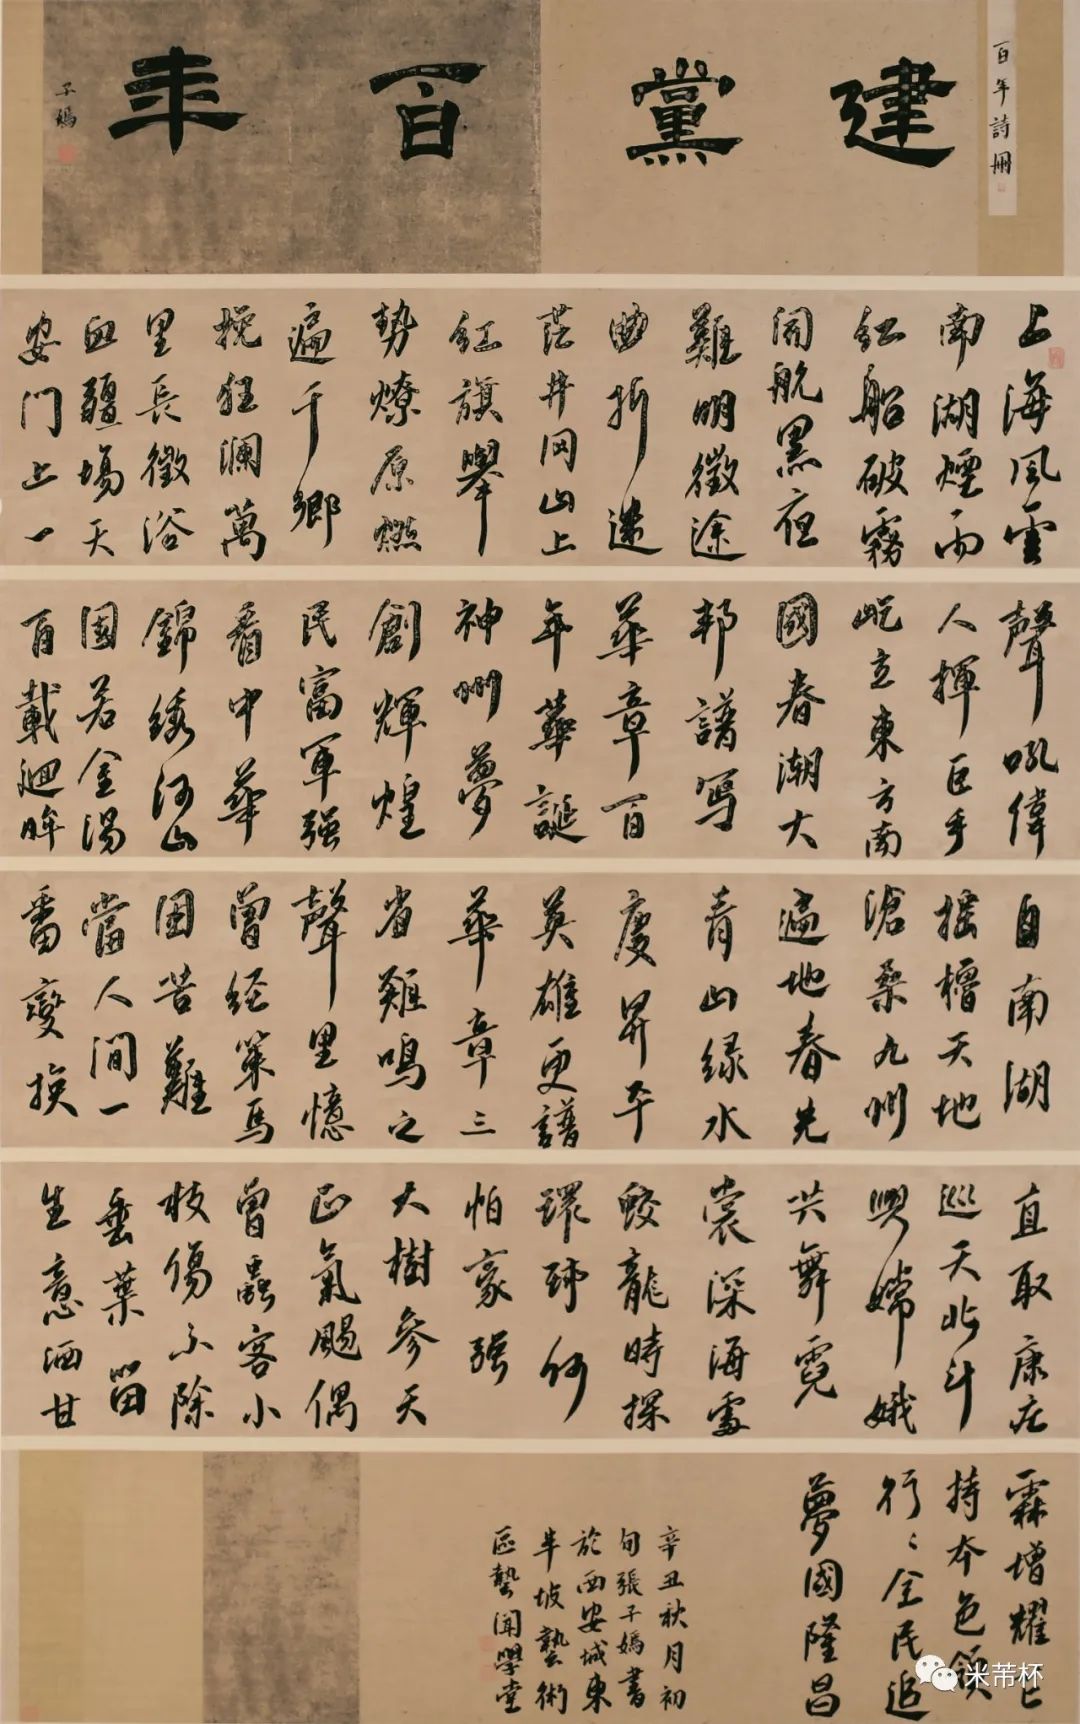 百年詩冊
建黨百年
子嫣
上海風雲
南湖煙雨
紅船破霧
開航黑夜
難明徵途
曲折迷
茫井岡山上
紅旗舉
勢燎原燃
遍千鄉
挽狂瀾萬
里長徵浴
血疆場天
安门上一
聲吼偉
人揮巨手
屹立東方南
國春潮大
邦譜寫
華章百
年華誕
神州夢
創輝煌
民富軍强
看中華
錦綉河山
固若金湯
百載迴眸
自南湖
摇櫓天地
滄桑九州
遍地春光
青山緑水
慶昇平
英雄更譜
華章三
省雞鳴之
聲里憶
曾经策馬
困苦難
當人間一
番變换
直取康莊
巡天北斗
興嫦娥
共舞霓
裳深海處
蛟龍時探
環球何
怕豪强
大樹參天
正氣颺偶
曾蟲客小
枝傷不除
垂葉留
生意洒甘
霖增耀
持本色領
行〻全民追
夢國隆昌
辛丑秋月初
旬張子嫣書
於西安城東
半坡藝術
區藝聞學堂
米芾杯